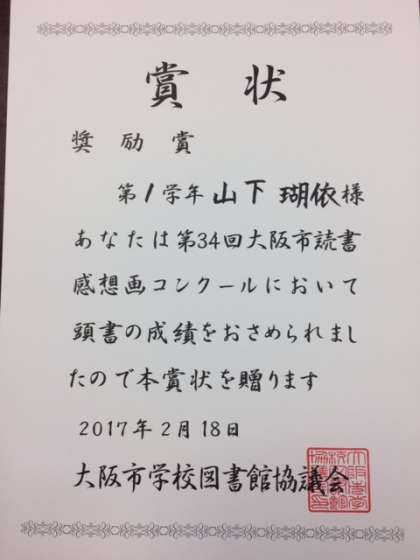 賞状
奨励賞
第1学年 山下 瑚依様
あなたは第34回大阪市読書
感想画コンクールにおいて
頭書の成績をおさめられまし
たので本賞状を贈ります
2017年2月18日
大阪市学校図書館協議会